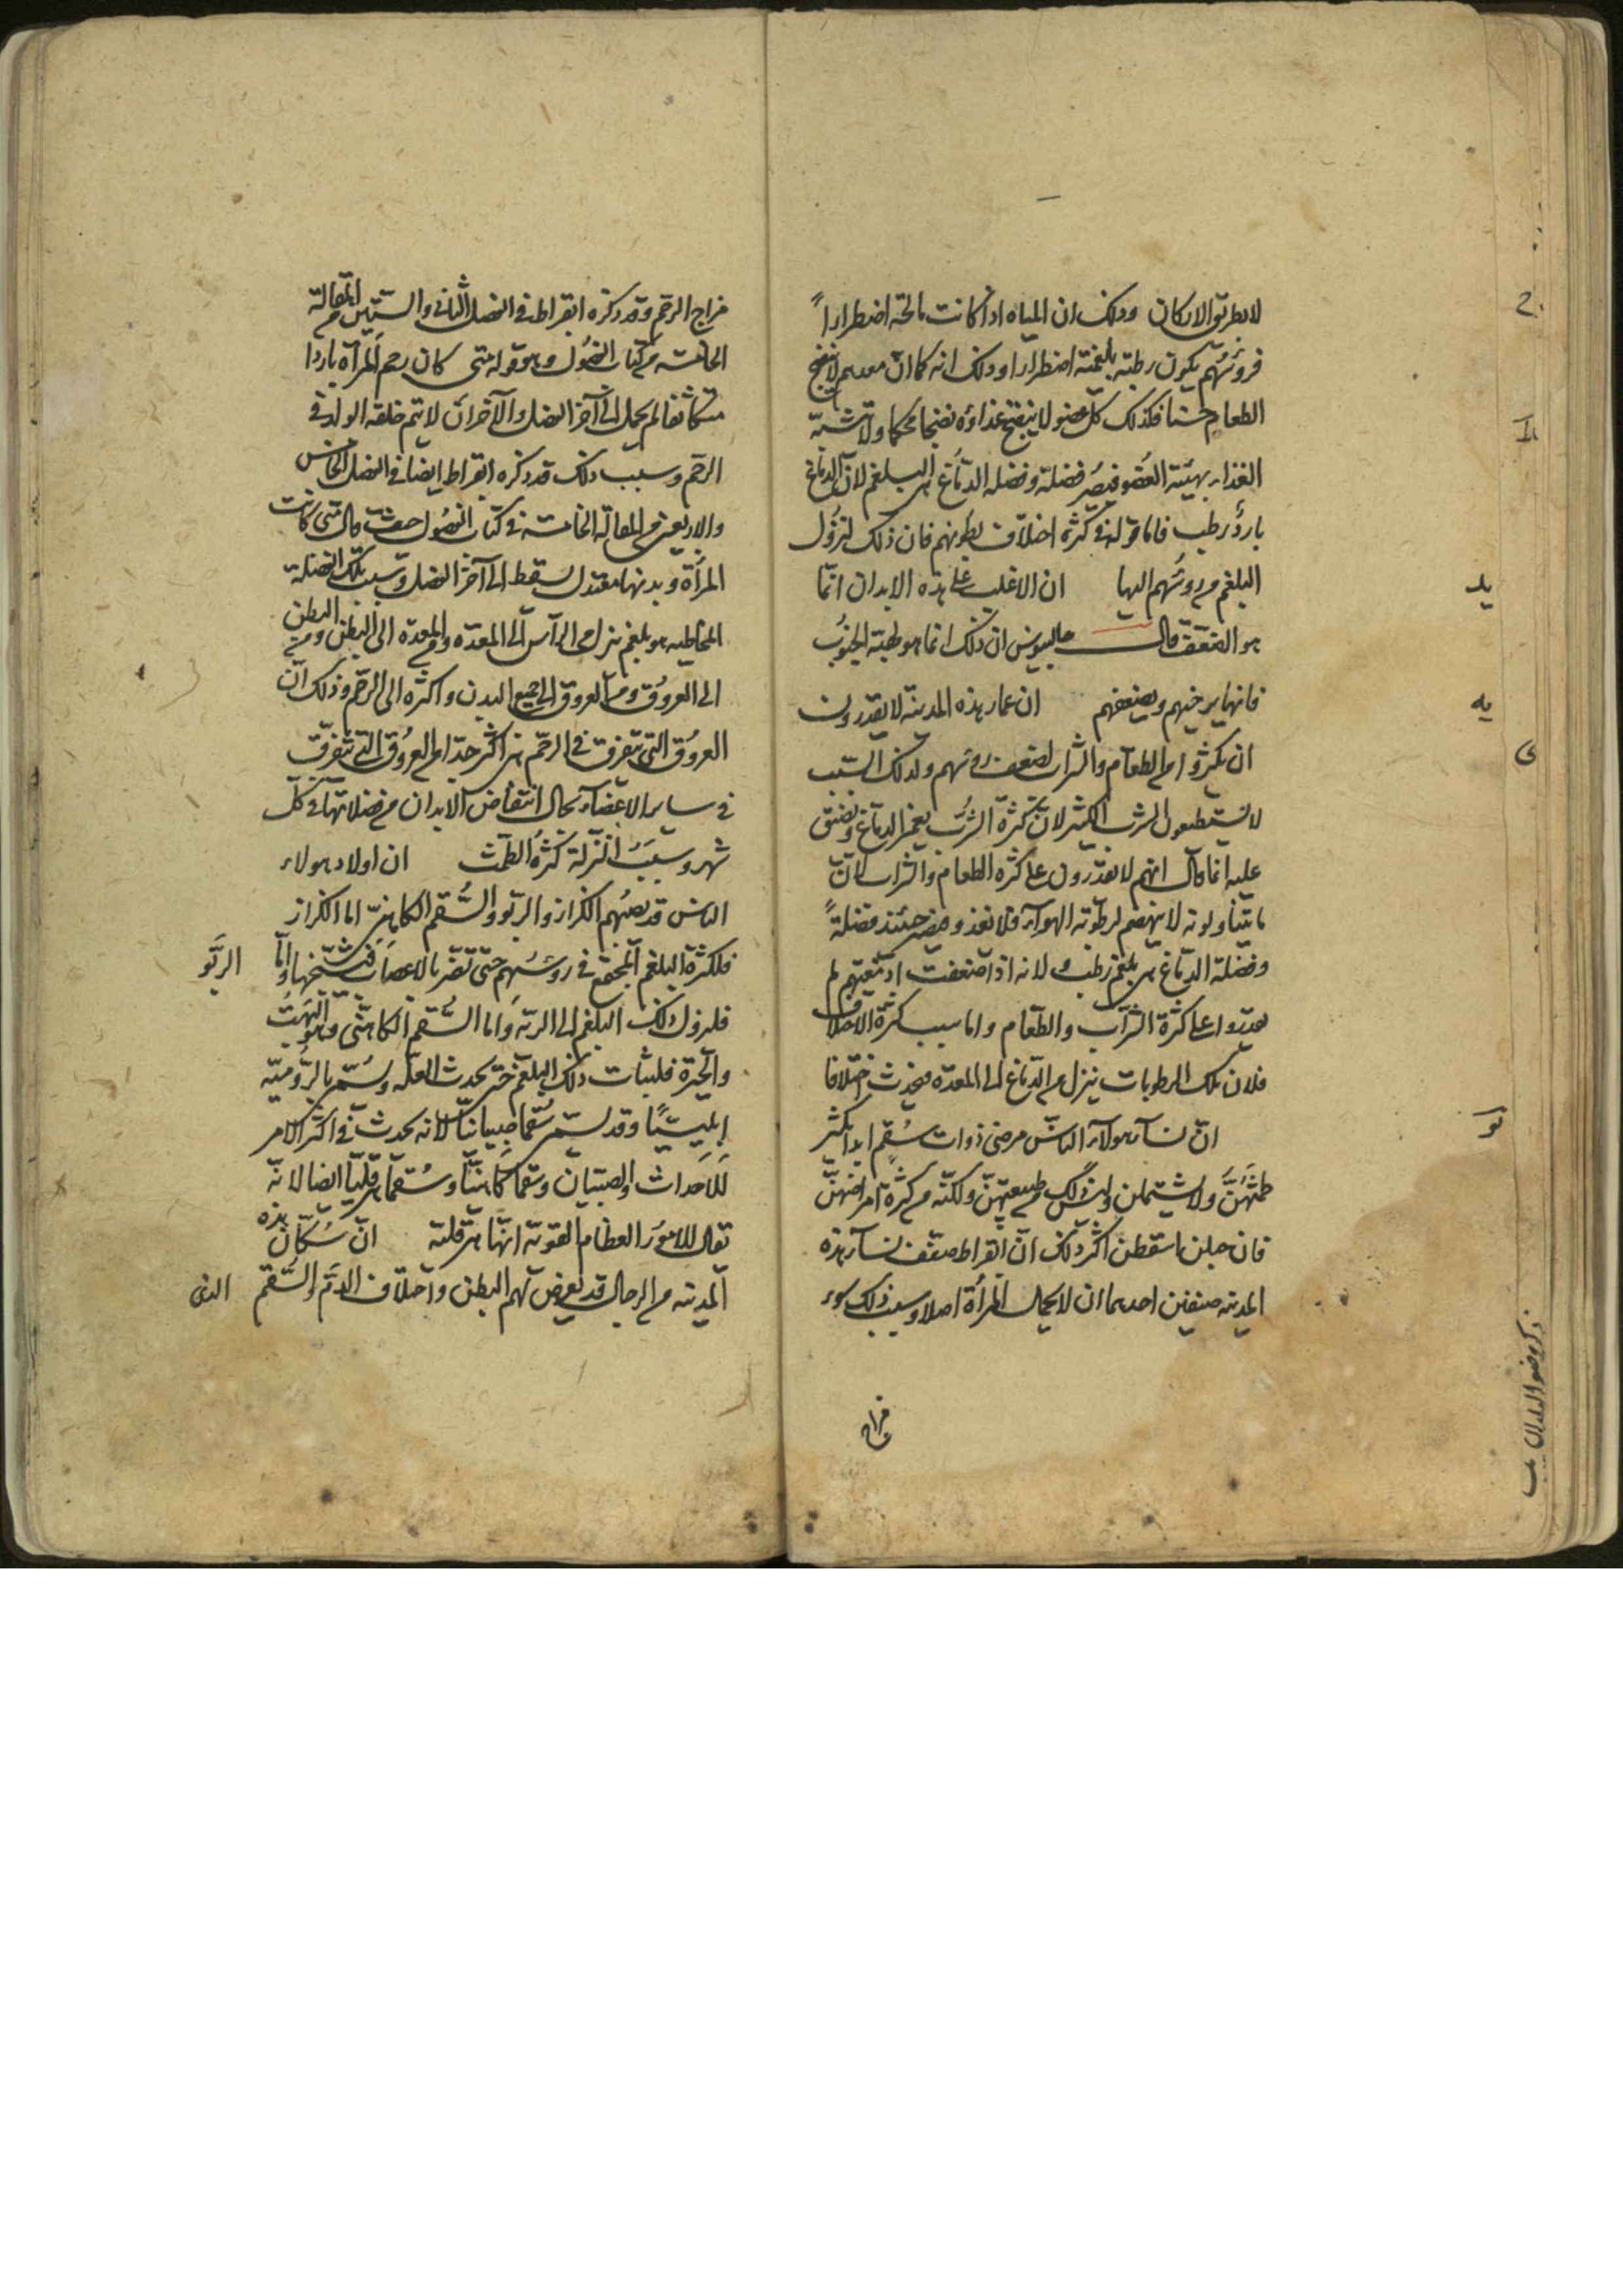 لا بطريق الاركان وذلك ان المياه اذا كانت مالحة اضطراراً
فرؤسهم يكون رطبة بلغمية اضطرارا وذلك انه كما ان معدهم لا ينضج
الطعام حسنا فكذلك كل عضو لا ينضج غذاؤه نضجا محكما ولا تشبه
الغذاء بهيئة العضو فيصر فضلة وفضلة الدماغ هى البلغم لان الدماغ
بارد رطب فاما قوله فى كثرة اختلاف بطونهم فان ذلك لنزول
البلغم من رؤسهم اليها ان الاغلب على هذه الابدان انما
هو الضعف قال جالينوس ان ذلك انما هو طبيعة الجنوب
فانها يرخيهم ويضعفهم ان عمار هذه المدينة لا يقدرون
ان يكثروا من الطعام والشراب لضعف رؤسهم ولذلك السبب
لا يستطيعون الشرب الكثير لان كثرة الشرب يغمر الدماغ ويضيق
عليه انما قال انهم لا يقدرون على كثرة الطعام والشراب لان
ما يتناولونه لا ينهضم لرطوبة الهواء فلا تغذو ويصير حينئذ فضلةً
وفضلة الدماغ هى بلغم رطب ولانه اذا ضعفت ادمغتهم لم
يقدروا على كثرة الشراب والطعام واما سبب كثرة الاختلاف
فلان تلك الرطوبات ينزل من الدماغ الى المعدة فيحدث اختلافا
ان نساء هولاء الناس مرضى ذوات سقم ابدا يكثر
طمثهن ولا يشتملن وليس ذلك من طبيعتهن ولكنه من كثرة امراضهن
فان حبلن اسقطن اكثر ذلك ان ابقراط صنف نساء هذه
المدينة صنفين احدهما ان لا يحمل المرأة اصلا وسبب ذلك سوء
مزاج
يد
يه
يو
مزاج الرحم وقد ذكره ابقراط فى الفصل الثانى والستين من المقالة
الخامسة من كتاب الفصول وهو قوله متى كان رحم المرأة باردا
متكاثفا لم يحمل الى آخر الفصل والآخر ان لا يتم خلقه الولد فى
الرحم وسبب ذلك قد ذكره ابقراط ايضا فى الفصل الخامس
والاربعين من المقالة الخامسة فى كتاب الفصول حيث قال متى كانت
المرأة وبدنها معتدل يسقط الى آخر الفصل وسبب تلك الفضلة
المخاطية هو بلغم ينزل من الرأس الى المعدة ومن المعدة الى البطن ومن البطن
الى العروق ومن العروق الى جميع البدن واكثره الى الرحم وذلك ان
العروق التى تتفرق فى الرحم هى اكثر جدا من العروق التى تتفرق
فى ساير الاعضاء بحال انتفاض الابدان من فضلاتها فى كل
شهر وسبب النزلة كثرة الطمث ان اولاد هولاء
الناس قد يصيبهم الكزاز والربو والسقم الكاهنى اما الكزاز
فلكثرة البلغم المجتمع فى رؤسهم حتى تضر بالاعصاب فيشنجها واما الربو
فلنزول ذلك البلغم الى الرية واما السقم الكاهنى وهو البهت
والحيرة فلثبات ذلك البلغم حتى يحدث العلة ويسمى بالرومية
ابليسيا وقد يسمى سقما صبيانيا لانه يحدث فى اكثر الامر
للاحداث والصبيان وسقما كاهنيا وسقما هرقليا ايضا لانه
تقال للامور العظام القوية انها هرقلية ان سكان هذه
المدينة من الرجال قد يعرض لهم البطن واختلاف الدم والسقم الذى